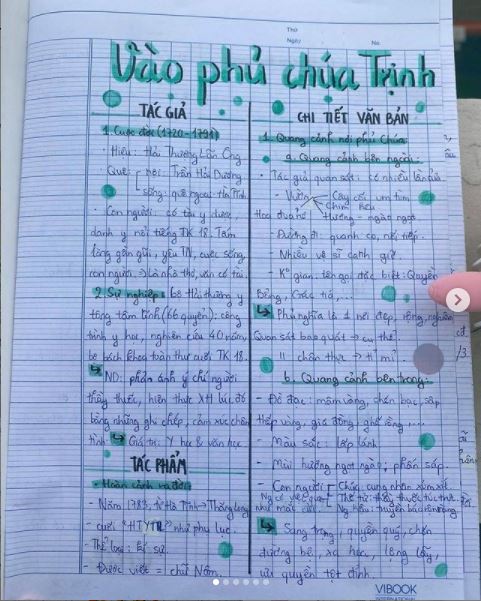 Thứ
Ngày No.
Vào phủ chúa Trịnh
TÁC GIẢ
1. Cuộc đời (1720-1791)
- Hiệu: Hải Thượng Lãn Ông
- Quê: nội: Trấn Hải Dương
sống: quê ngoại: Hà Tĩnh
- Con người: có tài y dược,
danh y nổi tiếng TK 18. Tấm
lòng gần gũi, yêu TN, cuộc sống,
con người. => Là nhà thơ, văn có tài.
2. Sự nghiệp: bộ Hải thượng y
tông tâm lĩnh (66 quyển): công
trình y học, nghiên cứu 40 năm,
bộ bách khoa toàn thư cuối TK 18.
ND: phản ánh ý chí người
thầy thuốc, hiện thực XH lúc đó
bằng những ghi chép, cảm xúc chân
thật. Giá trị: Y học & văn học
TÁC PHẨM
- Hoàn cảnh ra đời:
- Năm 1782, từ Hà Tĩnh → Thăng Long
- cuối "HTYTTL" như phụ lục.
- Thể loại: kí sự
- Được viết = chữ Nôm.
CHI TIẾT VĂN BẢN
1. Quang cảnh nơi phủ Chúa:
a. Quang cảnh bên ngoài:
- Tác giả quan sát: có nhiều lần cửa
- Vườn Cây cối um tùm
Chim kêu
Hoa đua nở Hương - ngào ngạt
- Đường đi: quanh co, nối tiếp.
- Nhiều vệ sĩ canh giữ.
- K° gian: tên gọi đặc biệt: Quyển
Bồng, Gác tía, ...
Phủ nghĩa là 1 nơi đẹp, rộng, nghiêm
Quan sát bao quát → cụ thể.
" chân thực → tỉ mỉ.
b. Quang cảnh bên trong:
- Đồ đạc: mâm vàng, chén bạc, sập
thếp vàng, giá đồng, ghế rồng, ...
- Màu sắc: lấp lánh.
- Mùi hương ngạt ngào; phấn sáp.
- Con người Chúa: cung nhân xúm xít.
Thế tử: thầy thuốc túc trực.
như mắc cửi. Ng hầu:
Sang trọng, quyền quý, chốn
đường bệ, xa hoa, lộng lẫy,
uy quyền tột đỉnh.
VIBOOK
INTERNATIONAL